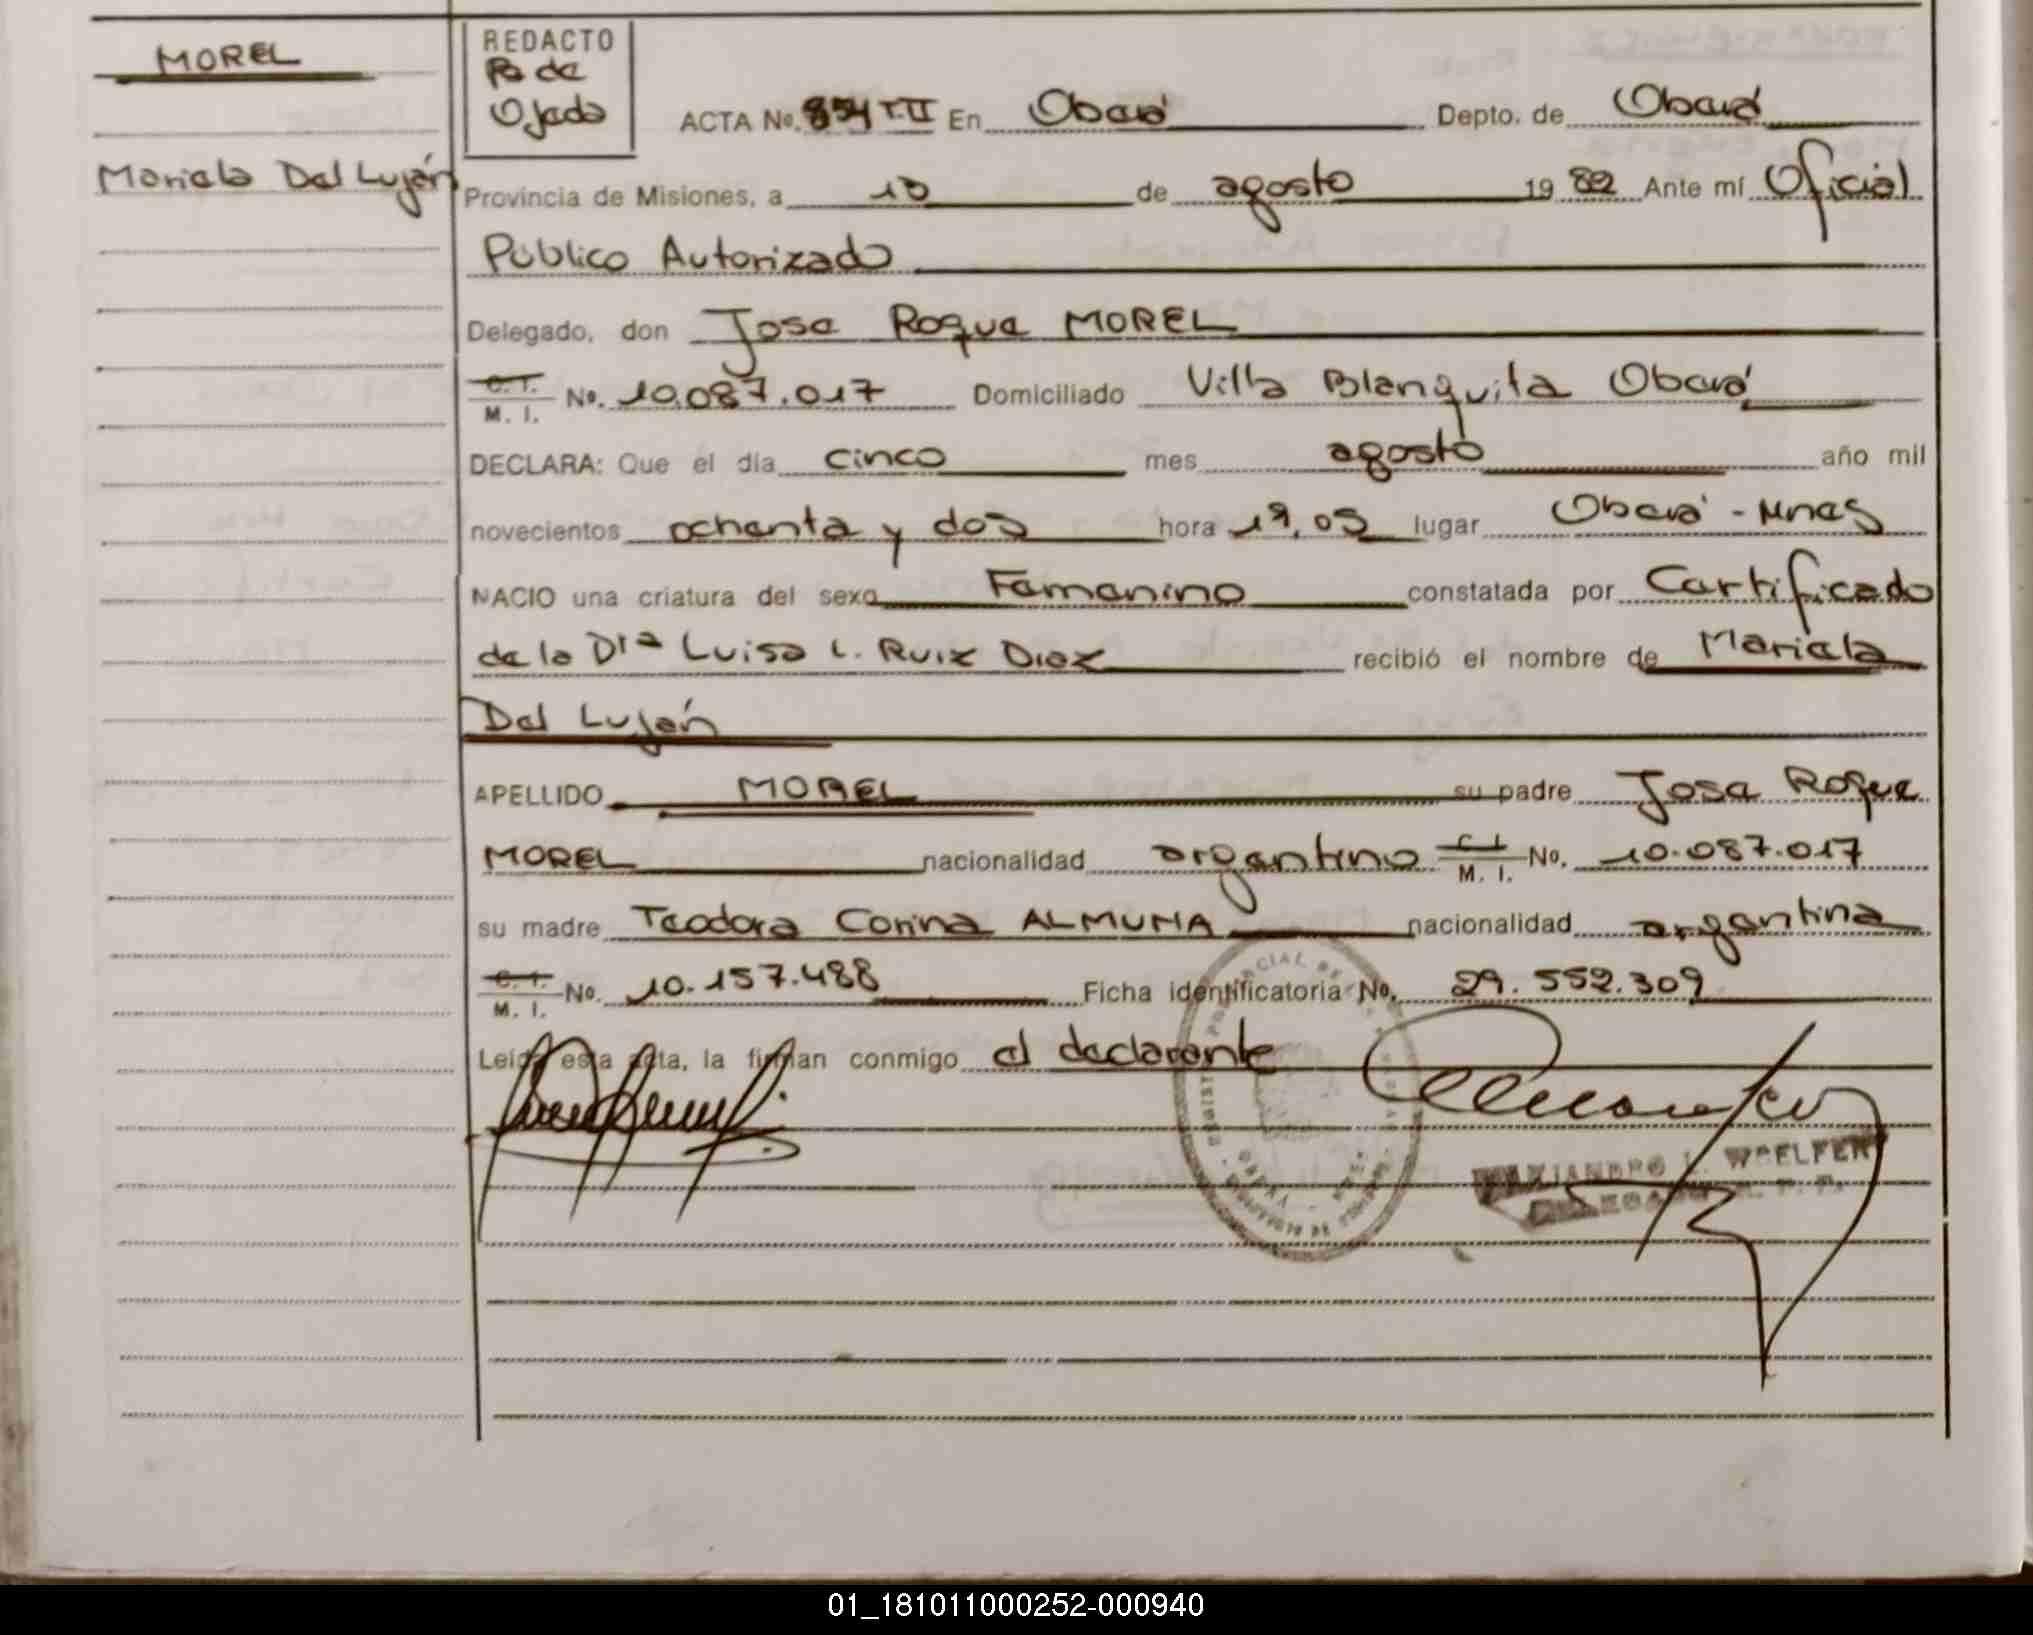 MOREL
Mariela Del Luján
REDACTO
Pa de
Ojeda
ACTA No. 854 T.II En Oberá Depto. de Oberá
Provincia de Misiones, a 10 de agosto 1982 Ante mí Oficial
Público Autorizado
Delegado, don Jose Roque MOREL
C. I. M. I. No. 10.087.017 Domiciliado Villa Blanquita Oberá
DECLARA: Que el día cinco mes agosto año mil
novecientos ochenta y dos hora 19,05 lugar Oberá - Mnes
NACIO una criatura del sexo Femenino constatada por Certificado
de la Dra Luisa L. Ruiz Diaz recibió el nombre de Mariela
Del Luján
APELLIDO MOREL su padre Jose Roque
MOREL nacionalidad argentino C. I. M. I. No. 10.087.017
su madre Teodora Corina ALMUNA nacionalidad argentina
C. I. M. I. No. 10.157.488 Ficha identificatoria No. 29.552.309
Leída esta acta, la firman conmigo el declarante
01_181011000252-000940